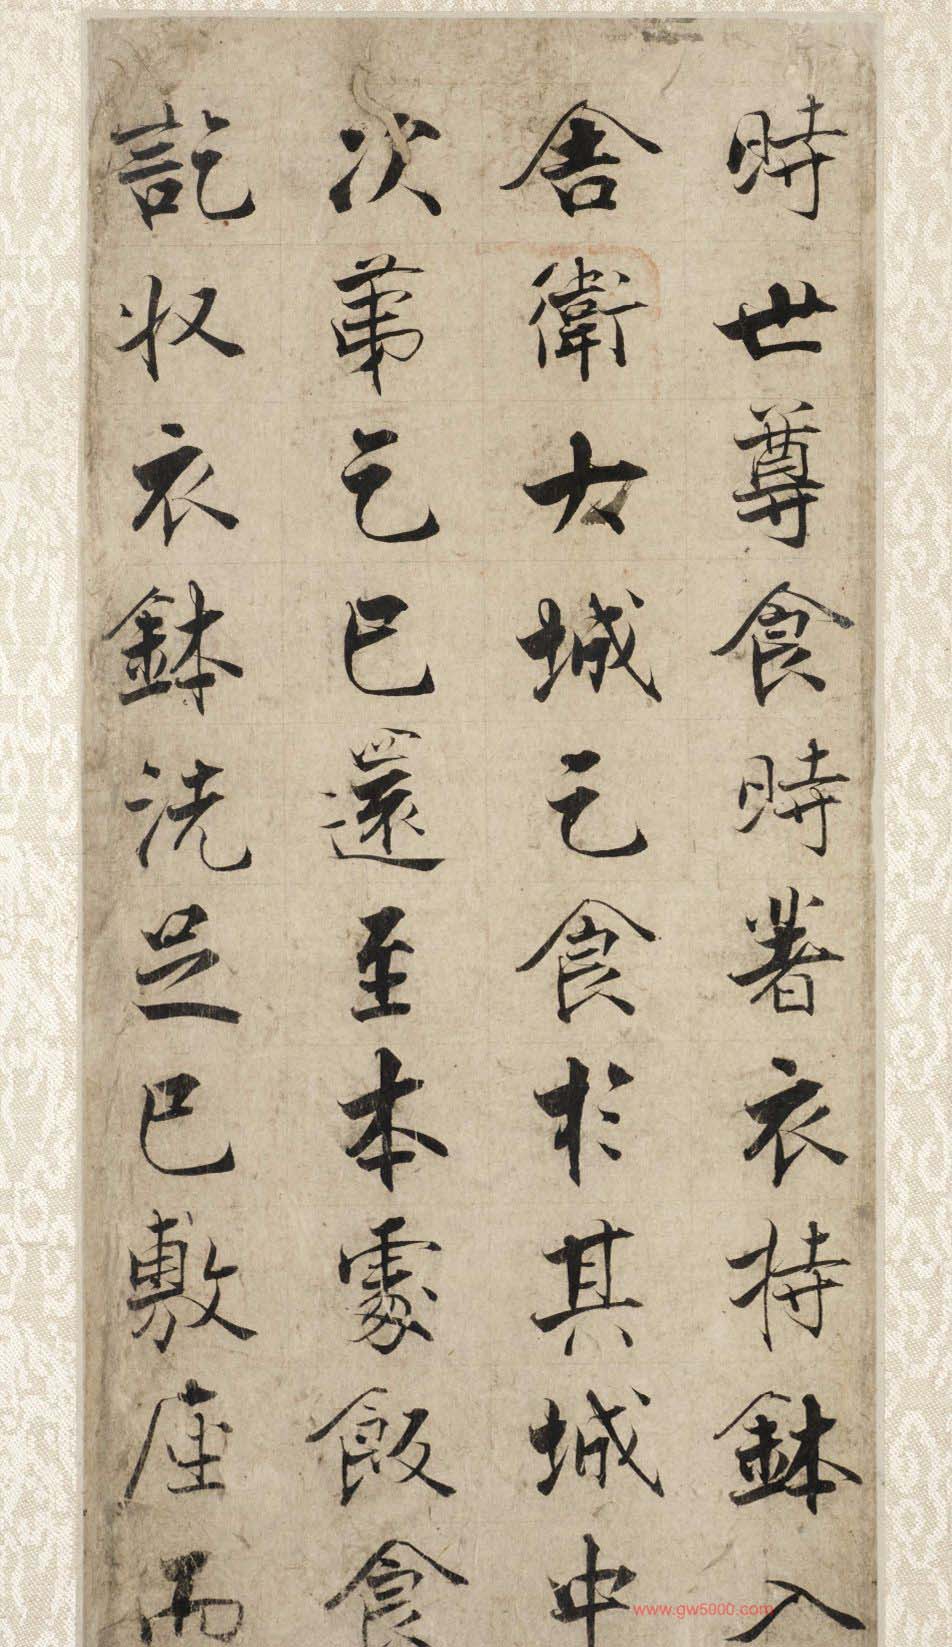 時世尊食時著衣持鉢入
舍衛大城乞食於其城中
次第乞已還至本處飯食
訖收衣鉢洗足已敷座而
www.gw5000.com